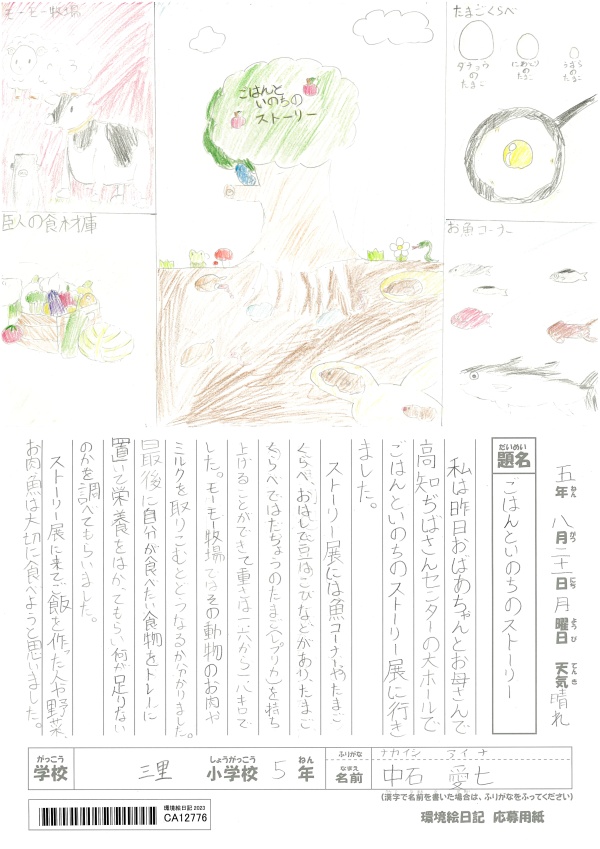 モーモー牧場
ごはんと
いのちの
ストーリー
たまごくらべ
ダチョウ
の
たまご
にわとり
の
たまご
うずら
の
たまご
巨人の食材庫
お魚コーナー
五年 八月二十一日 月曜日 天気 晴れ
ねん がつ にち ようび てんき
だいめい
題名 ごはんといのちのストーリー
私は昨日おばあちゃんとお母さんで
高知ぢばさんセンターの大ホールで
ごはんといのちのストーリー展に行き
ました。
ストーリー展には魚コーナーやたまご
くらべ、おはしで豆はこびなどがあり、たまご
くらべではだちょうのたまご(レプリカ)を持ち
上げることができて重さは一・六から一・八キロで
した。モーモー牧場ではその動物のお肉や
ミルクを取りこむとどうなるか分かりました。
最後に自分が食べたい食物をトレーに
置いて栄養をはかってもらい何が足りない
のかを調べてもらいました。
ストーリー展に来てご飯を作った人や野菜、
お肉、魚は大切に食べようと思いました。
がっこう しょうがっこう ねん ふりがな ナカイシ アイナ
学校 三里 小学校 5年 なまえ 名前 中石 愛七
(漢字で名前を書いた場合は、ふりがなをふってください)
環境絵日記 2023
CA12776
環境絵日記 応募用紙